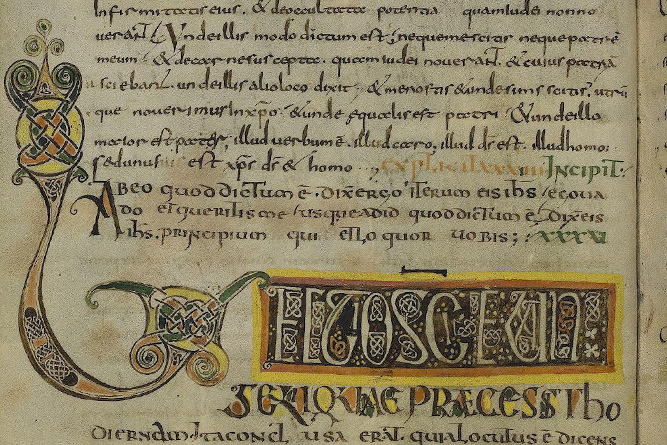 infirmitatis eius, & de occulta potentia quam iudei non no
verant. Unde illis modo dictum est; neque me scitis neque patrem
meum; & de carne suscepta. quam iudei noverant, & cuius patria
sciebant. unde illis alio loco dixit; & me nostis & unde sim scitis,
que noverimus in xpo. & unde equalis est patri & unde illo
maior est pater, illud verbum ē. illud caro, illud ds est. illud homo;
sed unus est xps ds & homo EXPLICIT XXXVIII INCIPIT
AB EO quod dictum ē. dixer̄ ergo iterum eis ihs / ego va
do et queritis me / usque ad id quod dictum ē. dixit eis
ihs. principium qui et loquor vobis; XXXVI
LECTIO SC̄I EVAN
GELII QUAE PRAECESSIT ho
diernam. ita concl usa erat quia locutus ē dicens